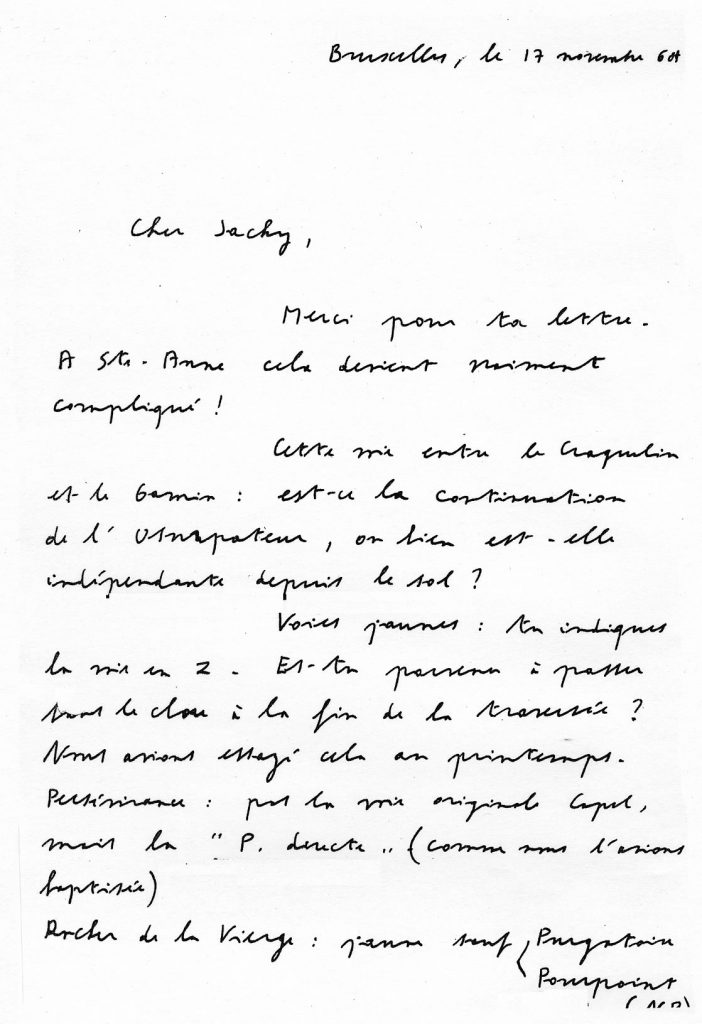 Bruxelles, le 17 novembre 64
Cher Jacky,
Merci pour ta lettre.
A Ste-Anne cela devient vraiment
compliqué !
Cette voie entre le Craquelin
et le Gamin : est-ce la continuation
de l'Usurpateur, ou bien est-elle
indépendante depuis le sol ?
Voies jaunes : tu indiques
la voie en Z. Es-tu parvenu à passer
sans le clou à la fin de la traversée ?
Nous avions essayé cela au printemps.
Persévérance : pas la voie originale Capel,
mais la "P. directe" (comme nous l'avions
baptisée)
Rocher de la Vierge : jaune sauf { Purgatoire
Pourpoint